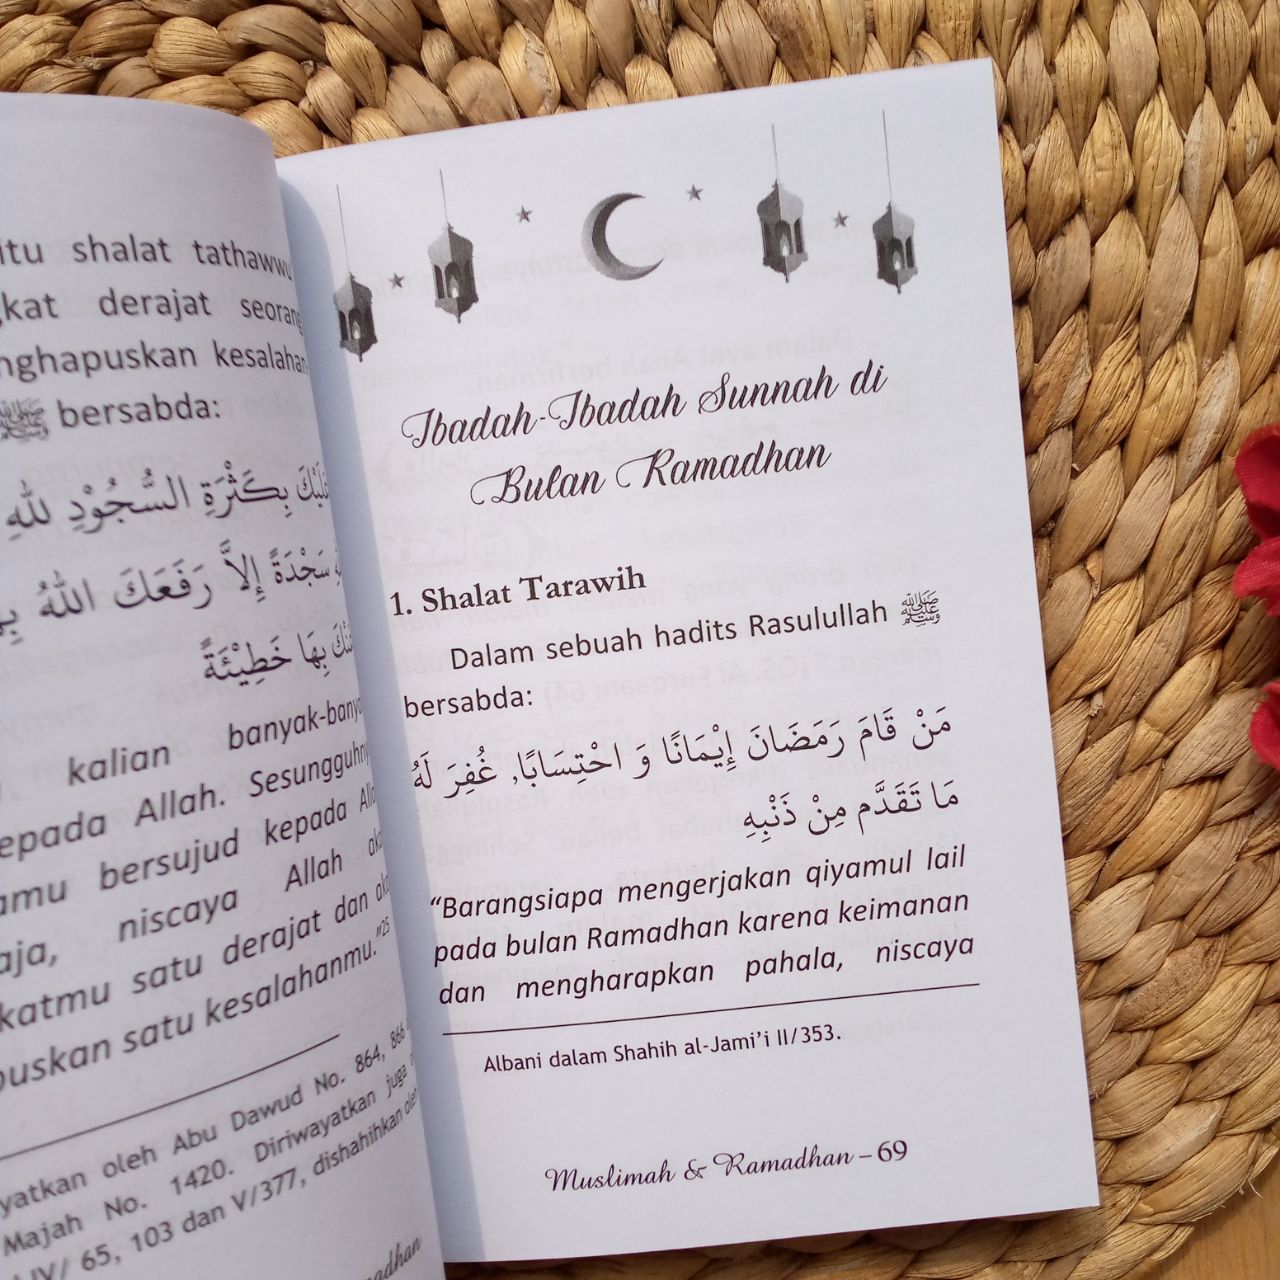 itu shalat tathawwu
gkat derajat seorang
nghapuskan kesalahan-
ﷺ bersabda:
عَلَيْكَ بِكَثْرَةِ السُّجُوْدِ لِلّٰهِ
سَجْدَةً إِلاَّ رَفَعَكَ اللهُ بِهَ
بِهَا خَطِيْئَةً
kalian banyak-banya
epada Allah. Sesungguhny
amu bersujud kepada Alla
aja, niscaya Allah aka
katmu satu derajat dan aka
puskan satu kesalahanmu."25
yatkan oleh Abu Dawud No. 864, 866
Majah No. 1420. Diriwayatkan juga
IV/ 65, 103 dan V/377, dishahihkan oleh
adhan
Ibadah-Ibadah Sunnah di
Bulan Ramadhan
1. Shalat Tarawih
Dalam sebuah hadits Rasulullah ﷺ
bersabda:
مَنْ قَامَ رَمَضَانَ إِيْمَانًا وَ احْتِسَابًا، غُفِرَ لَهُ
مَا تَقَدَّم مِنْ ذَنْبِهِ
"Barangsiapa mengerjakan qiyamul lail
pada bulan Ramadhan karena keimanan
dan mengharapkan pahala, niscaya
Albani dalam Shahih al-Jami'i II/353.
Muslimah & Ramadhan – 69